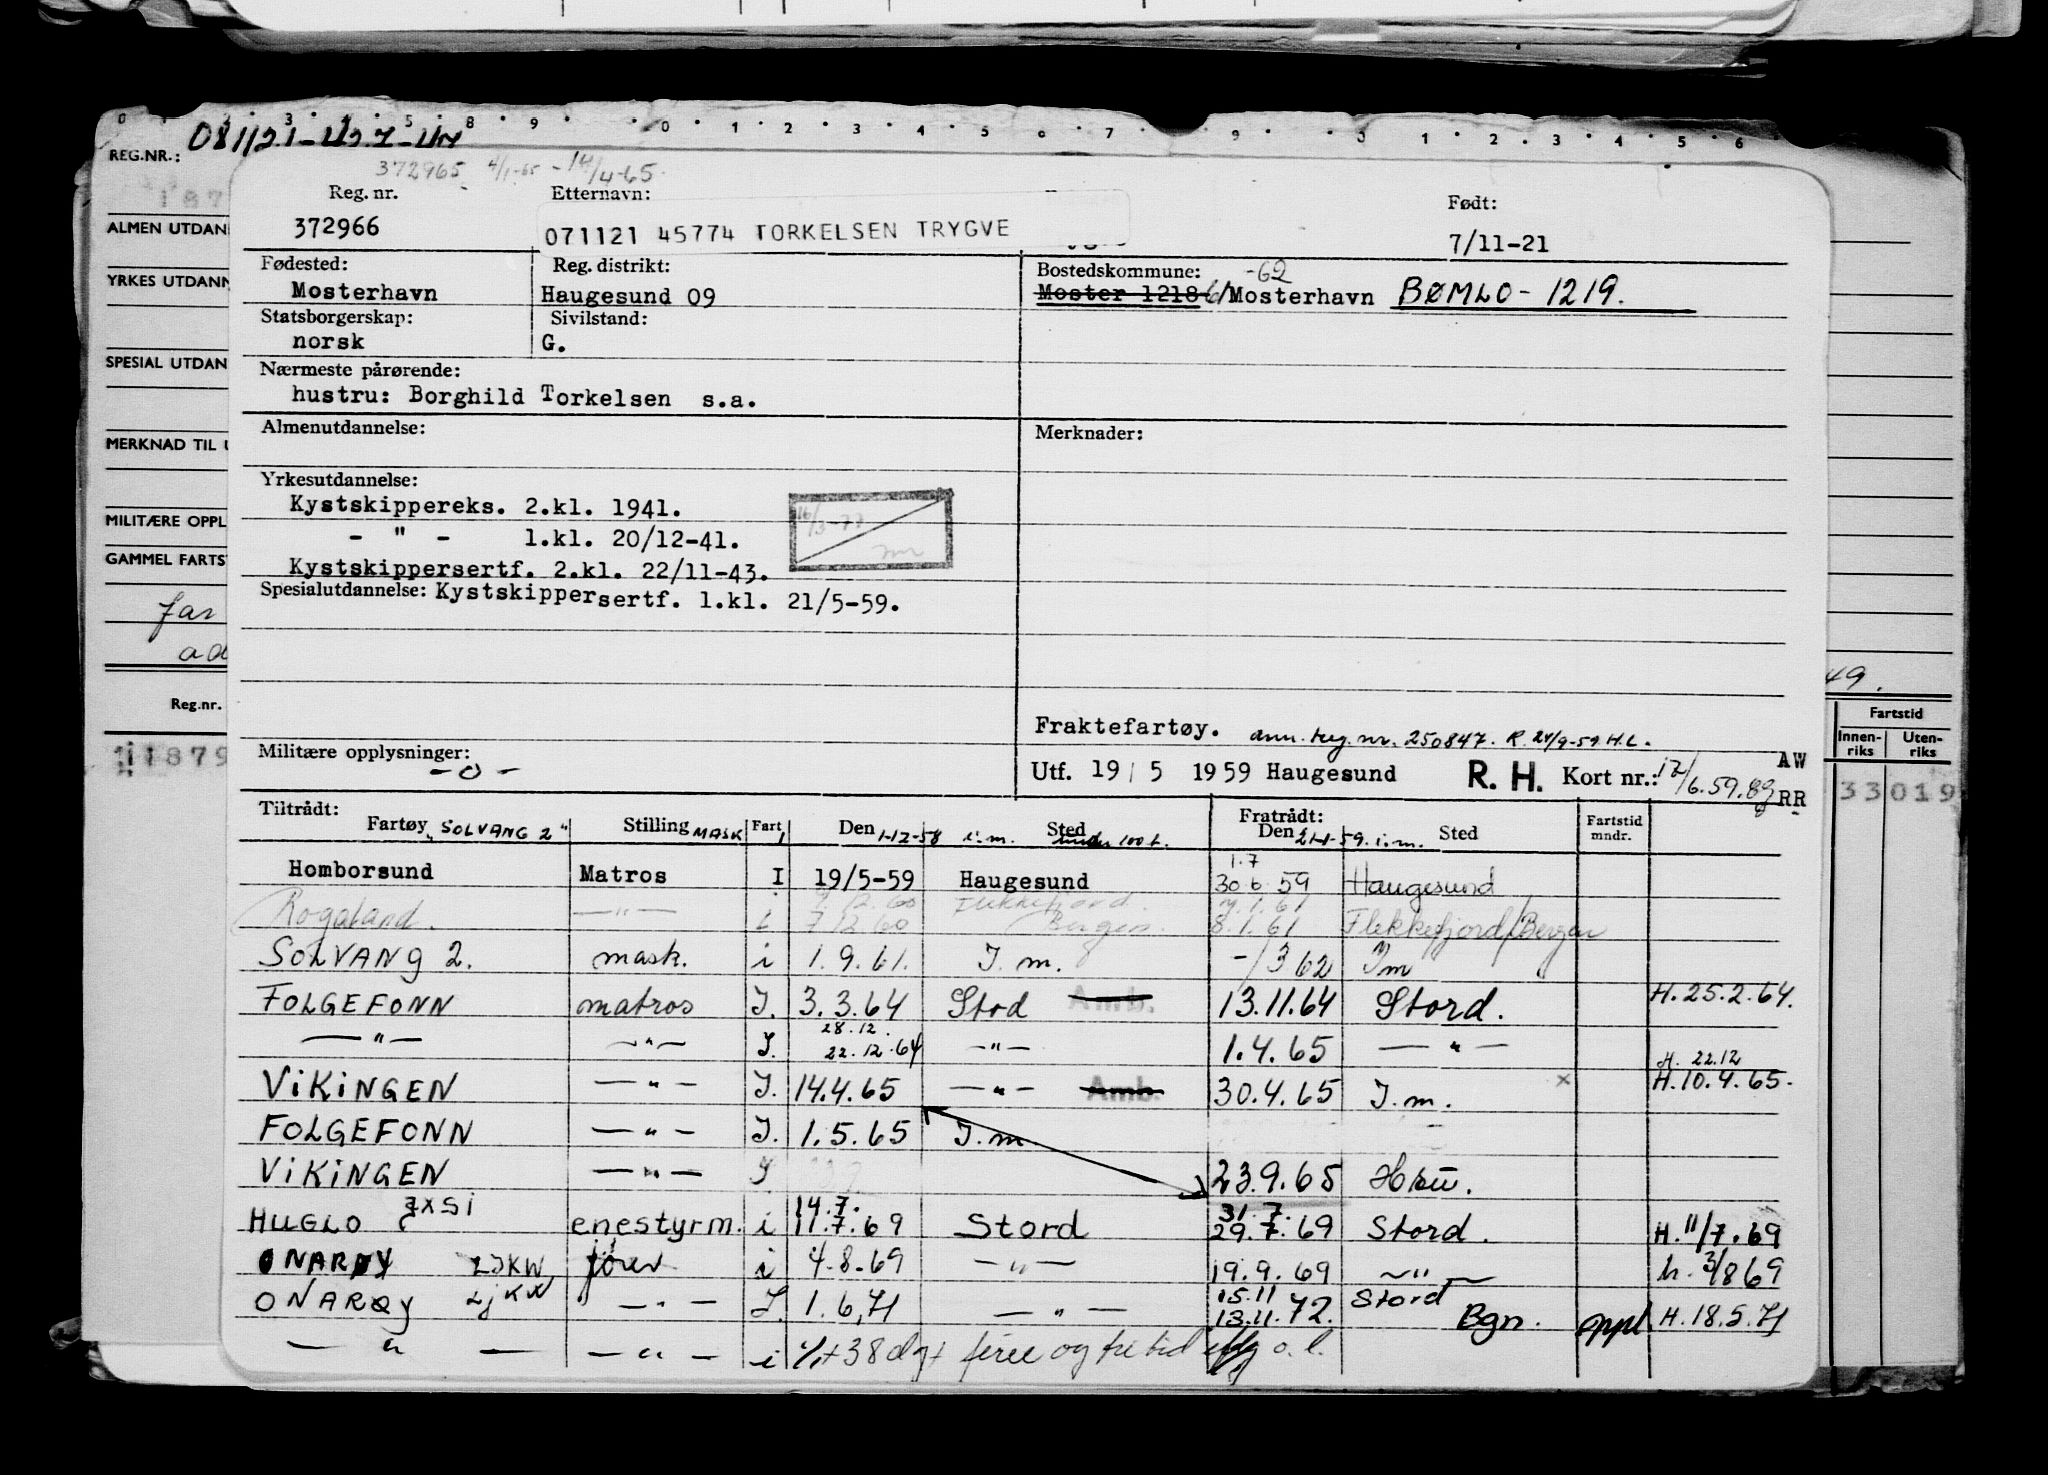 REG.NR.:
372965 4/1-65 - 14/4-65.
Reg. nr. Etternavn: Født:
372966 071121 45774 TORKELSEN TRYGVE 7/11-21
Fødested: Reg. distrikt: Bostedskommune: -62
Mosterhavn Haugesund 09 Moster 1218 61 Mosterhavn BØMLO - 1219.
Statsborgerskap: Sivilstand:
norsk G.
Nærmeste pårørende:
hustru: Borghild Torkelsen s.a.
Almenutdannelse: Merknader:
Yrkesutdannelse:
Kystskippereks. 2.kl. 1941.
- " - 1.kl. 20/12-41.
16/3-77
Kystskippersertf. 2.kl. 22/11-43.
Spesialutdannelse: Kystskippersertf. 1.kl. 21/5-59.
Fraktefartøy. ann. reg. nr. 250847. R. 24/9-59 H.L.
Militære opplysninger:
- o -
Utf. 19/5 1959 Haugesund R. H. Kort nr.: 12/6.59.89 AW
RR
Tiltrådt: Fratrådt:
Fartøy "SOLVANG 2" Stilling MASK Fart I Den 1-12-58 i.m. Sted under 100 t. Den 21-1-59. i.m. Sted Fartstid mndr.
Homborsund Matros I 19/5-59 Haugesund 1.7 30.6.59 Haugesund
Rogaland. -"- i 7.12.60 Flekkefjord. Bergen. 7.1.61 8.1.61 Flekkefjord/Bergen
SOLVANG 2. mask. i 1.9.61. I.m. -/3 62 Im
FOLGEFONN matros I. 3.3.64 Stod Amb. 13.11.64 Stord. H.25.2.64.
-"- -"- I. 28.12. 22.12.64 -"- 1.4.65 -"- H. 22.12
VIKINGEN -"- I. 14.4.65 -"- Amb. 30.4.65 I.m. x H.10.4.65.
FOLGEFONN -"- I. 1.5.65 I.m.
VIKINGEN -"- I 23.9.65
HUGLO enestyrm. i 14.7. 11.7.69 Stord 31.7. 29.7.69 Stord. H. 11/7.69
ONARØY LJKW fører i 4.8.69 -"- 19.9.69 -"- h. 3/8 69
ONARØY LJKW -"- I. 1.6.71 -"- 15.11 13.11.72. Stord Bgn. oppl H.18.5.71
-"- -"- i + 38 dg + ferie og fritid o.l.
ALMEN UTDAN
YRKES UTDANN
SPESIAL UTDAN
MERKNAD TIL U
MILITÆRE OPPL
GAMMEL FARTS
far
Reg.nr.
11879
49.
Fartstid
Innen-riks Uten-riks
33019